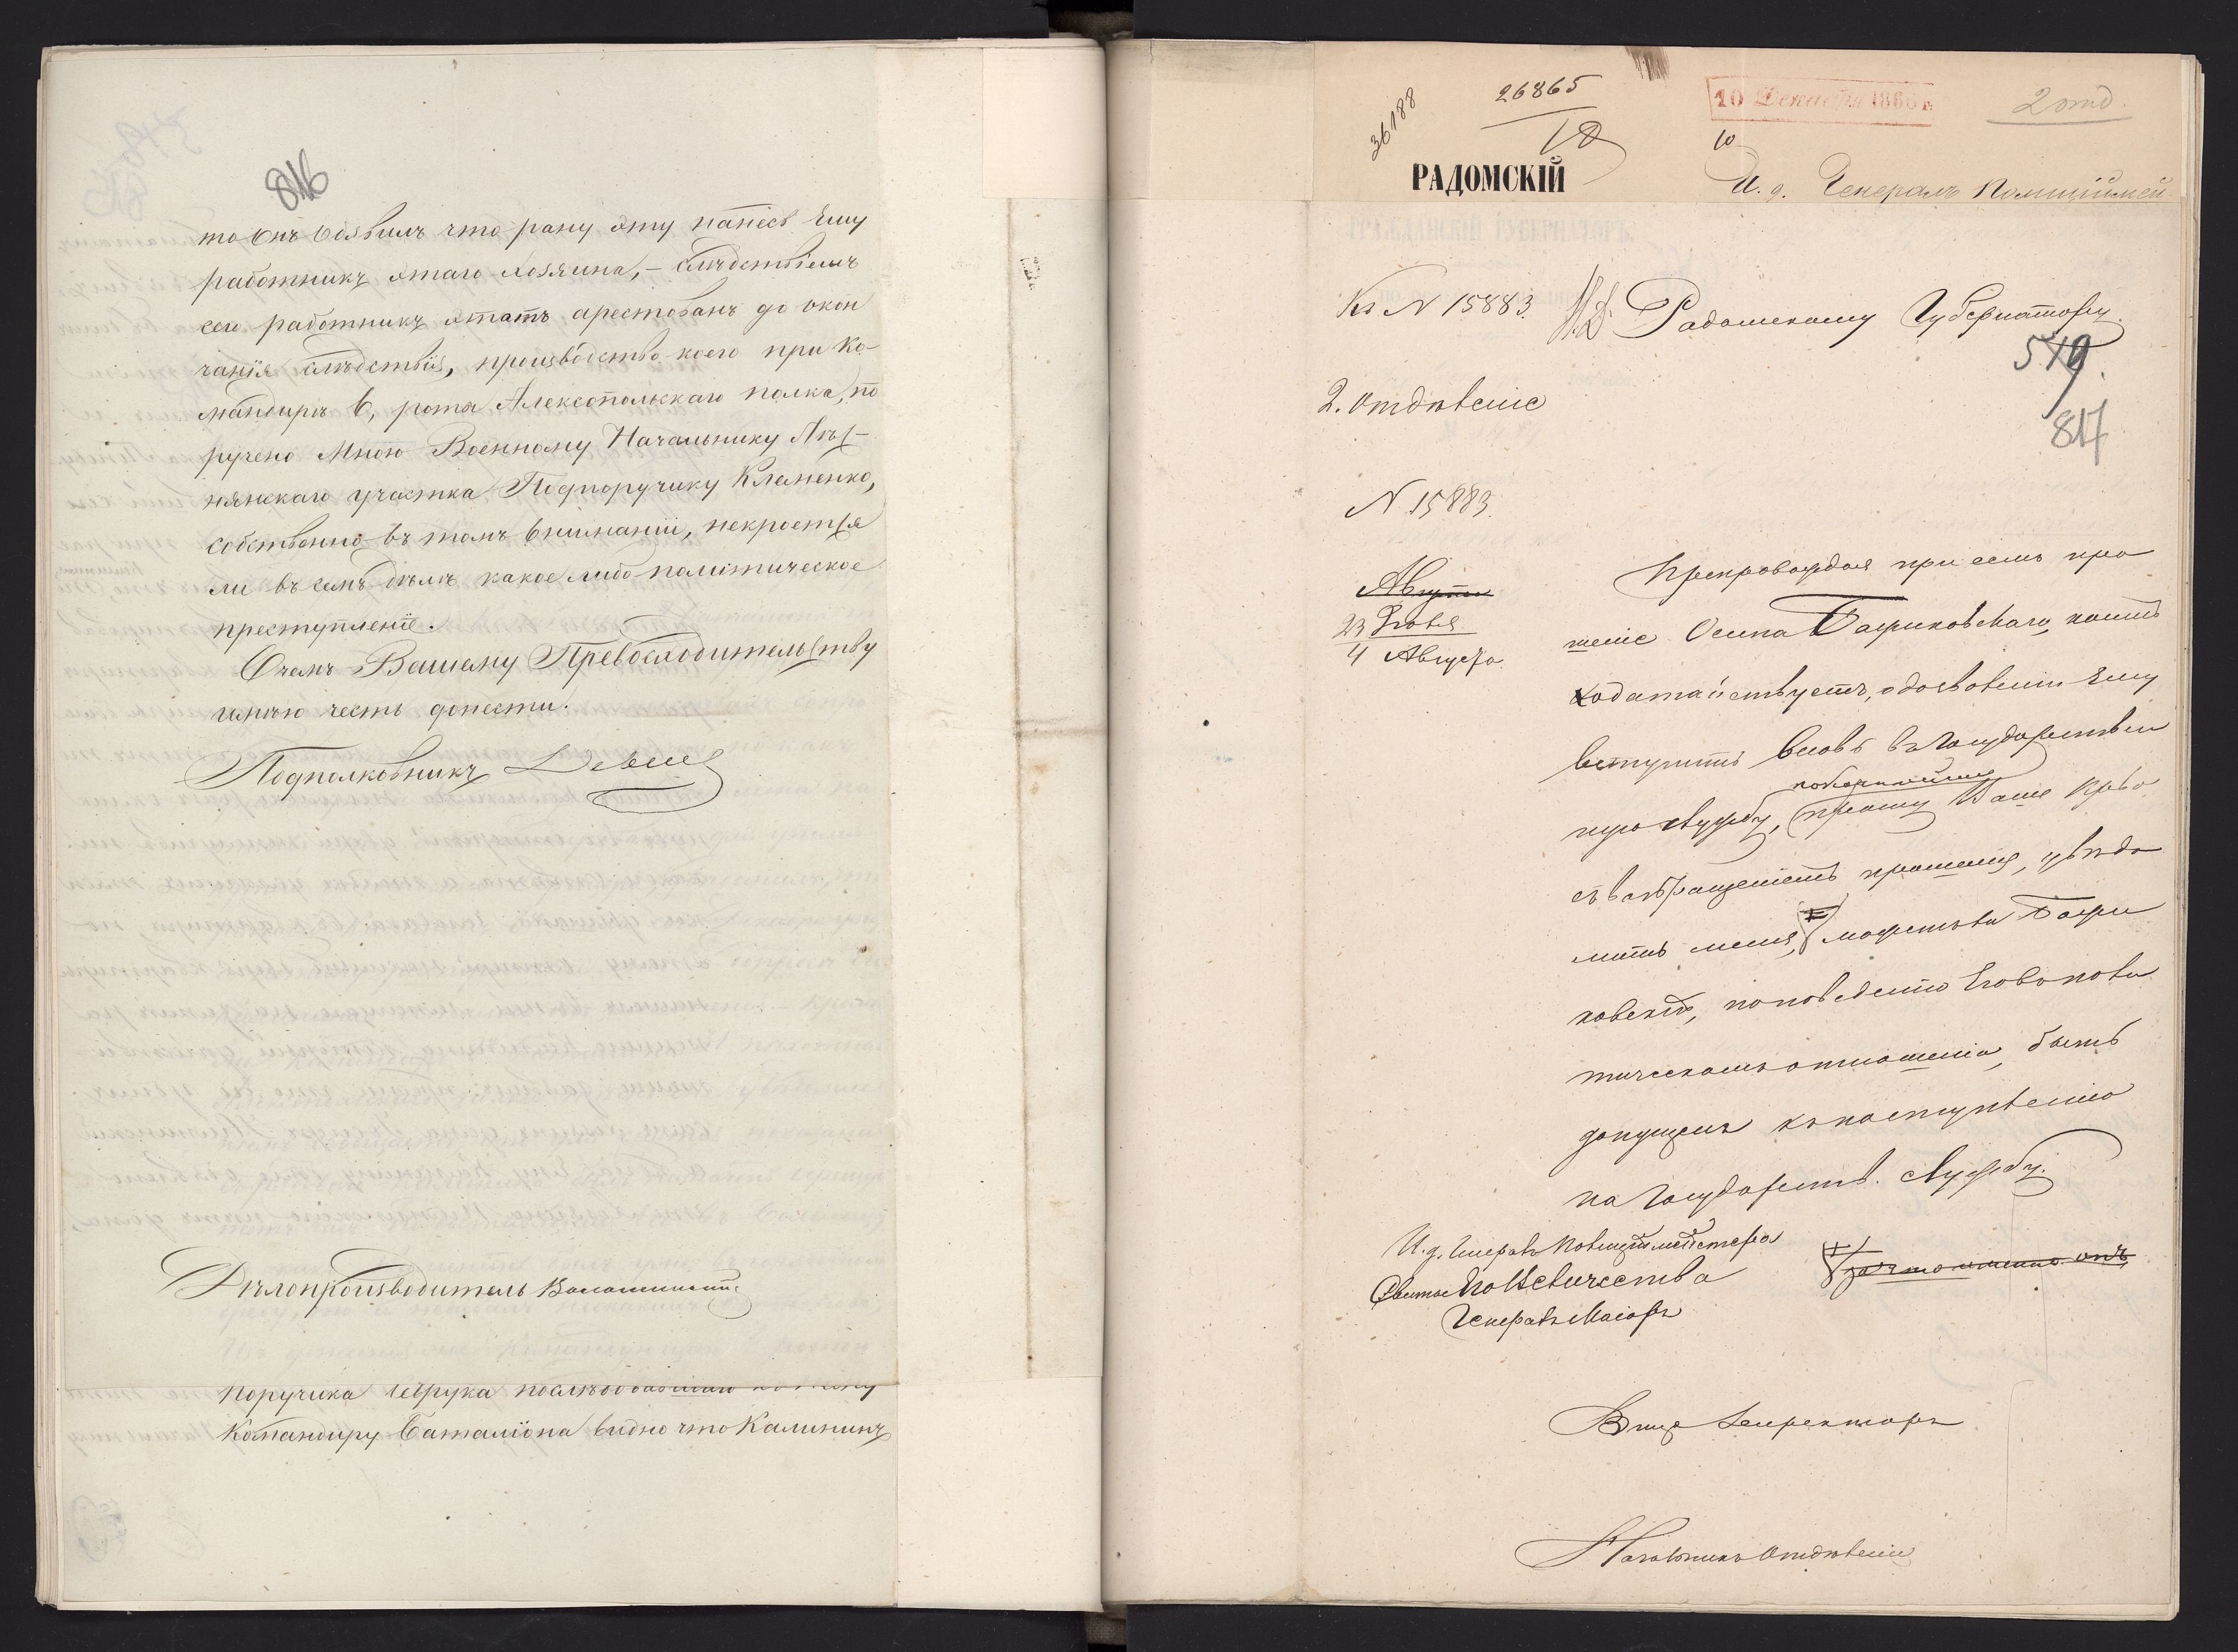 816
то Онъ Обявилъ что рану эту нанесъ Ему
работникъ этаго хозяина, – слѣдствіемъ
сего работникъ этатъ арестованъ до окон
чанія слѣдствія, производство коего при Ко-
мандирѣ 6, рота Алексопольскаго полка, по
ручено Мною Военному Начальнику
нянскаго участка Подпоручику Клеменко,
собственно въ томъ вниманіи, некроется
ли въ семъ дѣлѣ какое либо политическое
преступленіе.
Очемъ Вашему Превосходительству
имѣю честь донести.
Подполковникъ
Дѣлопроизводитель
поручика
Командиру Баталіона видно что Калининъ
36188
26865
18
10 Декабря 186
2 отд
10
РАДОМСКІЙ
И. д. Генералъ Полиціймей
ГРАЖДАНСКІЙ ГУБЕРНАТОРЪ
Къ N 15883.
И.Д. Радомскому Губернатору
519.
817
2. Отдѣленіе
N 15883.
Августа
23 Іюля
4 Августа
Препровождая при семъ про
шеніе Осипа
ходатайствуетъ, о дозволеніи Ему
вступить вновь въ Государствен
покорнѣйше
ную службу, прошу Ваше Прево
съ возвращеніемъ прошенія, увѣдо
мить меня, можетъ ли
ковскій, по поведенію Его въ поли
тическомъ отношеніи, быть
допущенъ къ поступленію
на Государств. службу.
И. д. Генералъ Полиціймейстера
Свиты Его Величества
Генералъ Маіоръ
за что именно онъ
Вице Директоръ
Начальникъ Отдѣленія